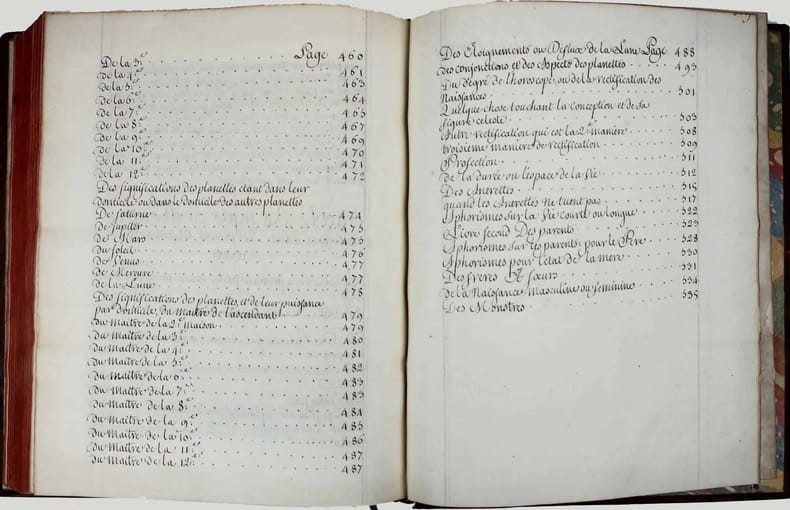 De la 3.e Page 460
De la 4.e 461
De la 5.e 463
De la 6.e 464
De la 7.e 465
De la 8.e 467
De la 9.e 469
De la 10.e 470
De la 11.e 471
De la 12.e 472
Des significations des planettes etant dans leur
domicile ou dans le domicile des autres planettes
De saturne 474
De jupiter 475
De Mars 475
Du soleil 476
De Venus 477
De Mercure 477
De la Lune 478
Des significations des planettes, et de leur puissance
par domicile, du maitre de l'ascendant 479
Du Maitre de la 2.e maison 479
Du Maitre de la 3.e 480
Du Maitre de la 4.e 481
Du Maitre de la 5.e 482
Du Maitre de la 6.e 483
Du Maitre de la 7.e 483
Du Maitre de la 8.e 484
Du Maitre de la 9.e 485
Du Maitre de la 10.e 486
Du Maitre de la 11.e 487
Du Maitre de la 12.e 487
Des Eloignements ou Deflux de la Lune Page 488
Des conjonctions et des Aspects des planettes 493
Du degré de lhoroscope, ou de la rectification des
Naissances 501
Quelque chose touchant la conception et de sa
figure celeste 503
Autre rectification qui est la 2.e maniere 508
troisieme maniere de rectification 509
Profection 511
De la durée ou l'espace de la Vie 512
Des Anerettes 515
quand les Anerettes ne tuent pas 517
Aphorismes sur la Vie courte ou longue 522
Livre second Des parents 523
Aphorismes sur les parents, pour le Pere 528
Aphorismes pour l'etat de la mere 530
Des freres Et sœurs 531
De la Naissance masculine ou feminine 534
Des Monstres 535